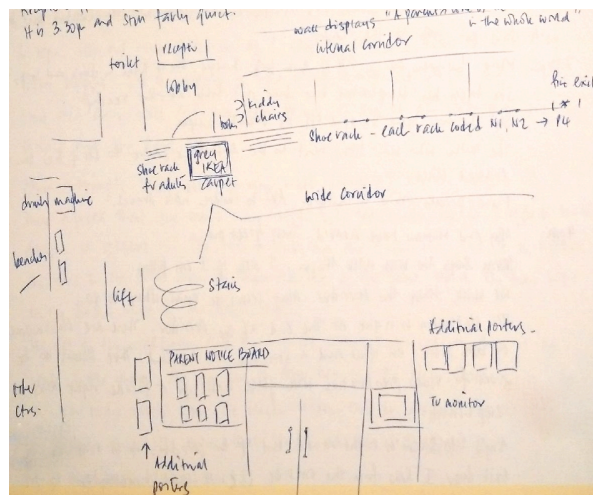 It is 3.30pm and still fairly quiet.
wall displays "A parent's
in the whole world"
internal corridor
toilet
recept
lobby
kiddy
chairs
fire exit
Shoe rack - each rack coded N1, N2 → P4
shoe rack
for adults
grey
IKEA
carpet
drinks machine
wide corridor
benches
lift
Stairs
Additional posters
PARENT NOTICE BOARD
TV monitor
ctrs.
Additional
posters